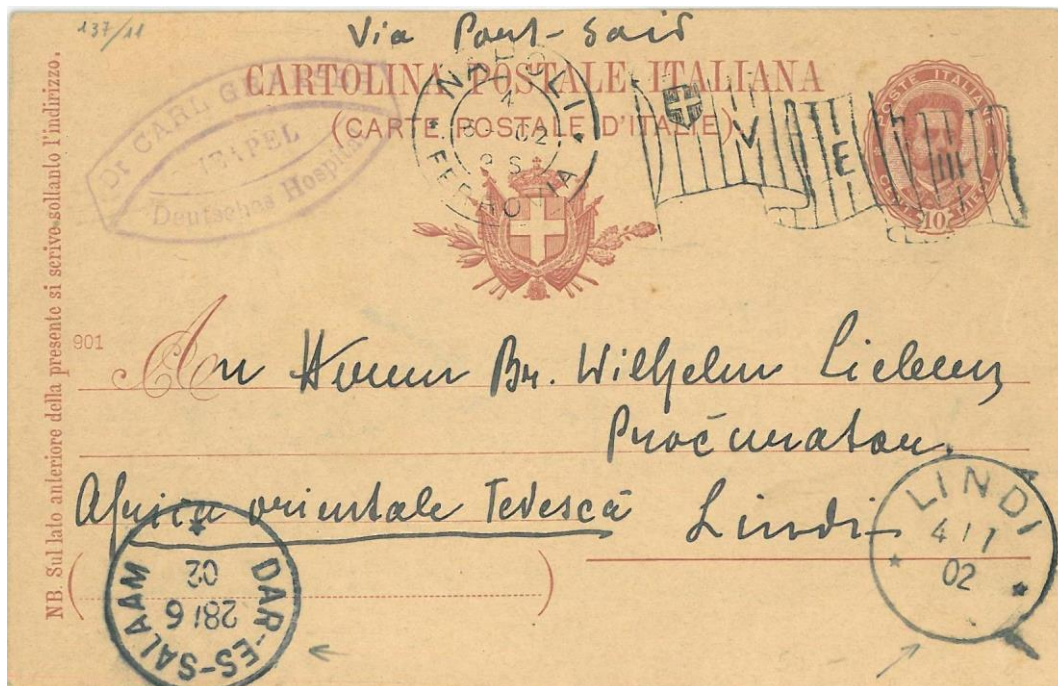 137/11
Via Port-Said
CARTOLINA POSTALE ITALIANA
(CARTE POSTALE D'ITALIE)
DI CARL G
Deutsches Hospital
NAPOLI
FERROVIA
POSTE ITALIANE
CENT. 10 DIECI
NB. Sul lato anteriore della presente si scrive soltanto l'indirizzo.
901
An Herrn Br. Wilhelm
Procurator
Africa orientale Tedesca Lindi
LINDI
4/7
02
DAR-ES-SALAAM
28/6
02